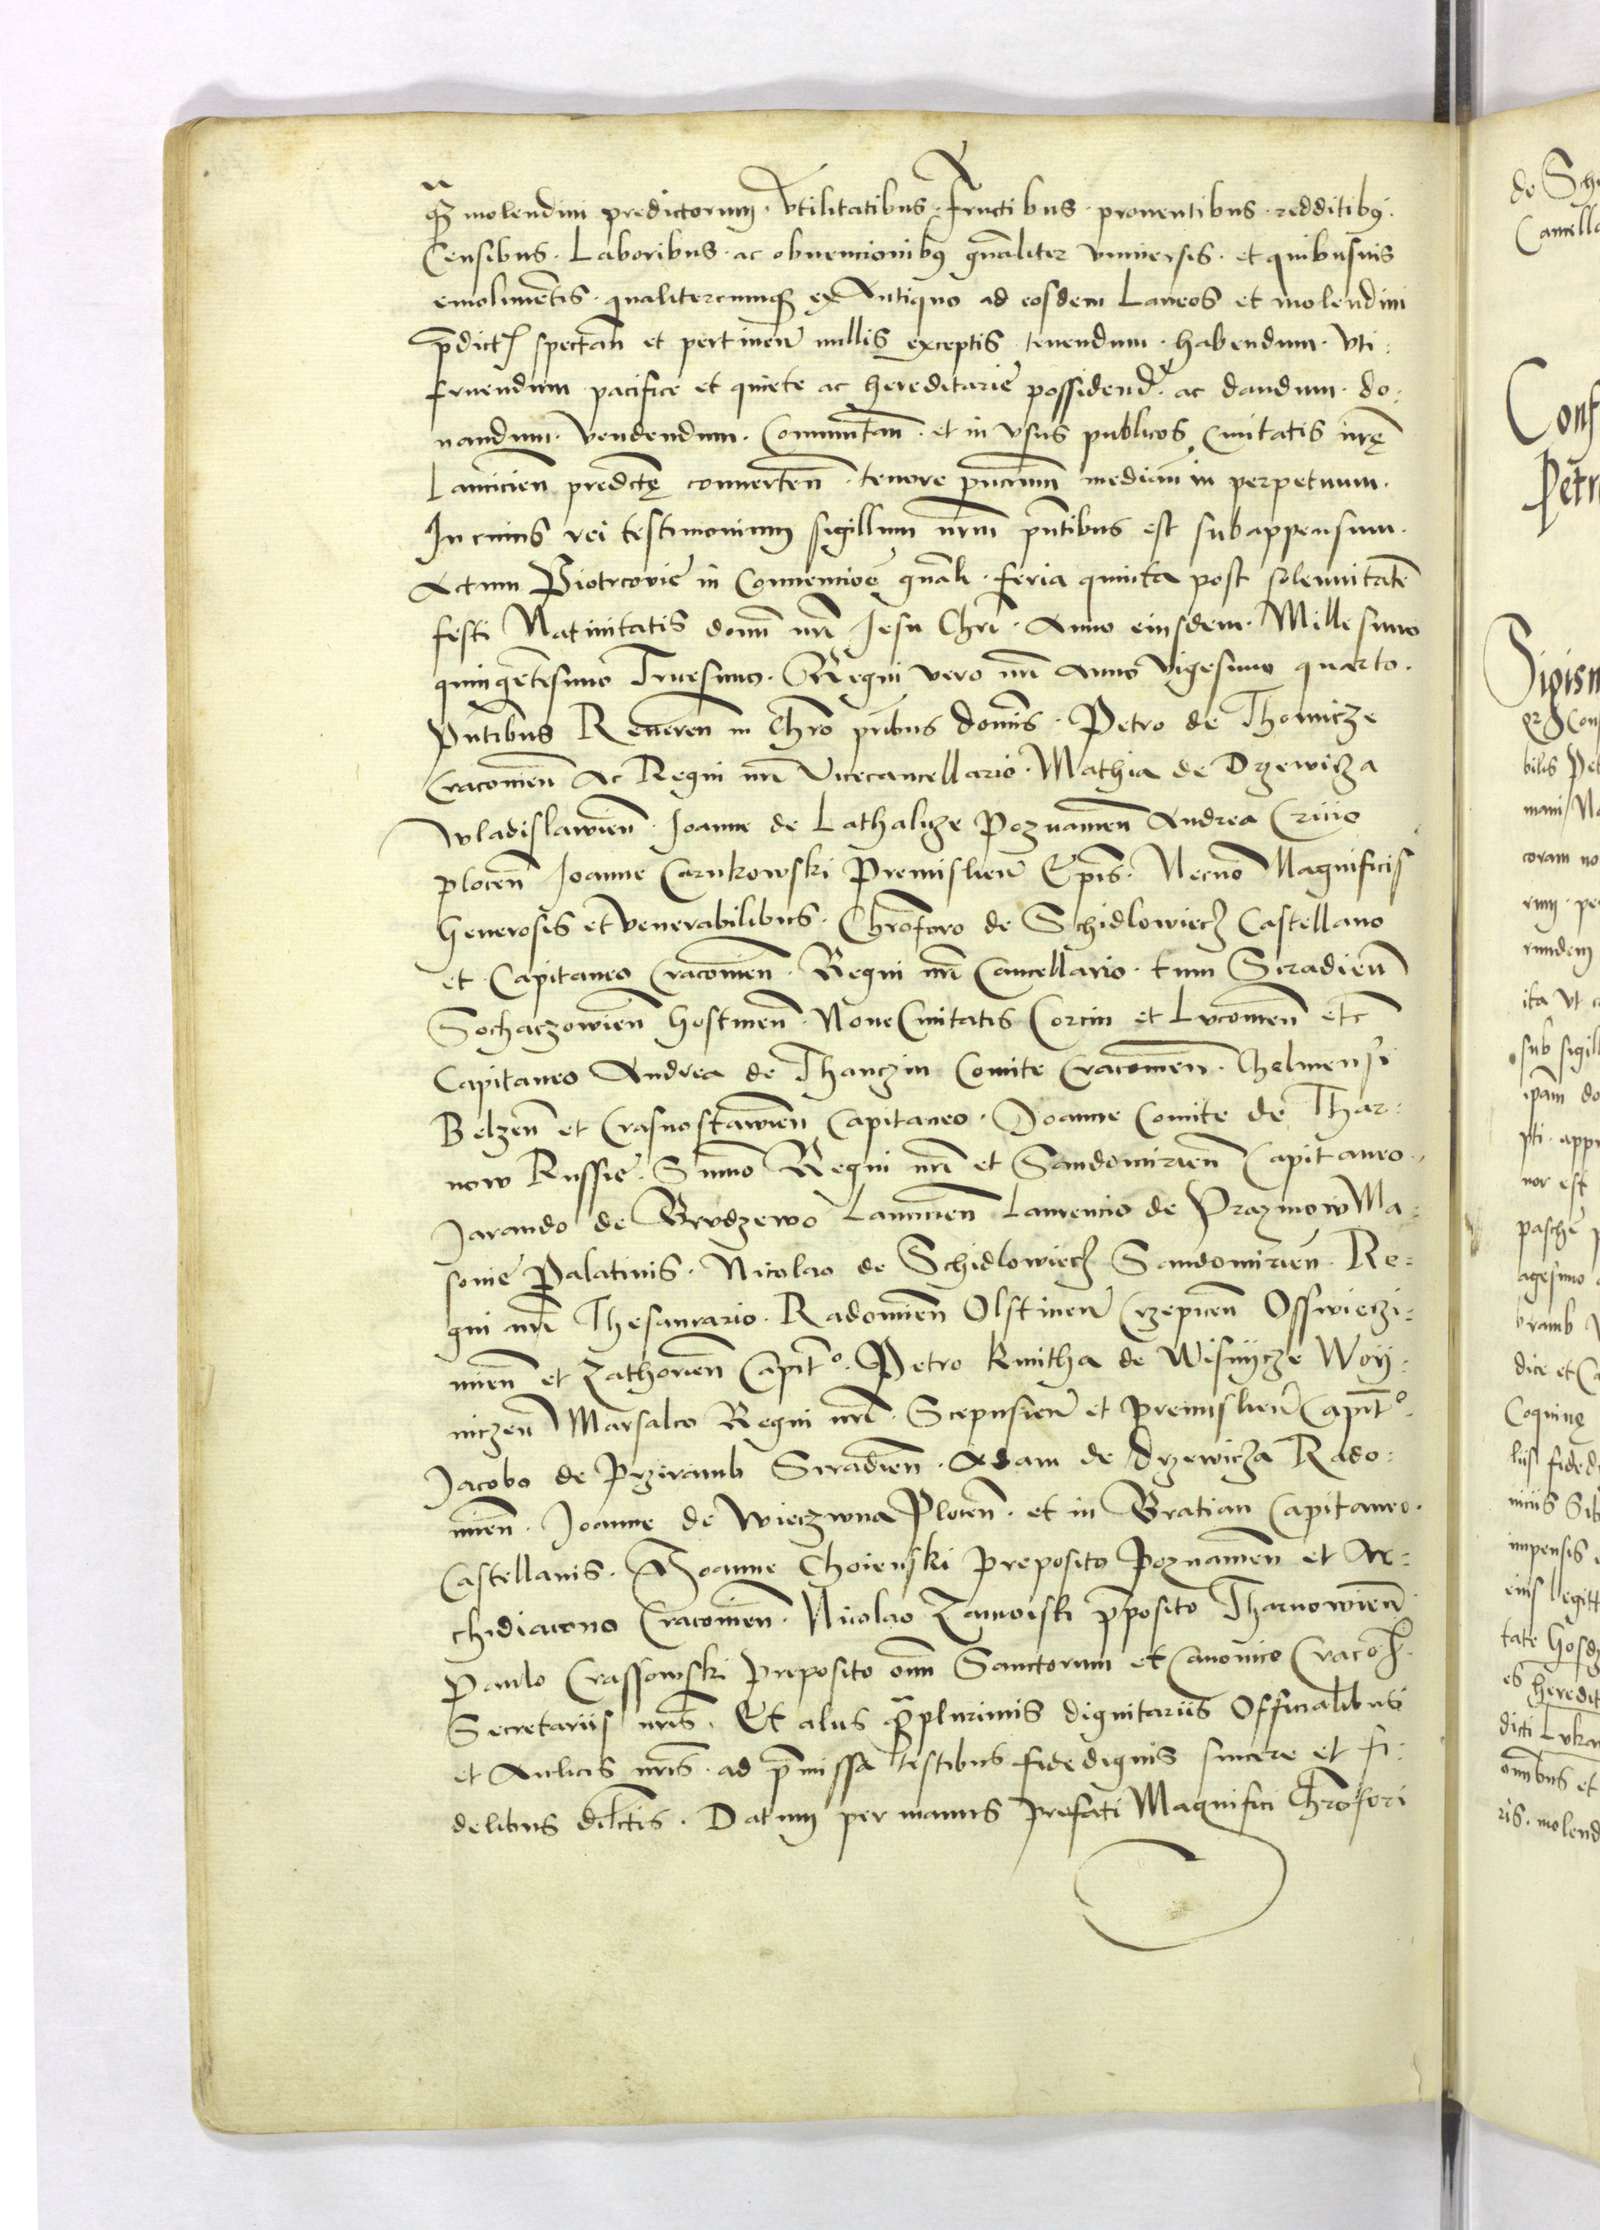 molendini predictorum · Vtilitatibus · Fructibus · prouentibus · redditibꝰ ·
Censibus · Laboribus · ac obuencionibꝰ gñaliter vniuersis · et quibusuis
emolimētis · qualitercumqꝫ ex Antiquo ad eosdem Laneos et molendini
p̄dict spectañ et pertineñ nullis exceptis tenendum · habendum · vti:
fruendum pacifice et quiete ac hereditarie possidend · ac dandum · do:
nandum · vendendum · Commutañ · et in vsus publicos Ciuitatis nr̄ę
Lancicień predictę conuerteñ · tenore pñcium mediañ in perpetuum ·
In cuius rei testimonium sigillum nrm̄ pñtibus est subappensum ·
Actum Piotrcovie in Conuencioē gñali · feria quinta post solennitatē
festi Natiuitatis domī nrī Jesu Chrī · Anno eiusdem · Millesimo
quingētesimo Tricesimo · Regni vero nrī anno vigesimo quarto ·
Pñtibus Reuereñ in Chro pr̄ibus Domīs · Petro de Thomicze
Cracouień Ac Regni nrī Vicecancellario · Mathia de Drzewicza
Wladislawień · Joanne de Lathalicze Poznanień Andrea Cricio
Plocen̄ Joanne Carnkowski Premislień Ep̄is · Necno Magnificis
Generosis et venerabilibus · Chrōforo de Schidlowiecz Castellano
et Capitaneo Cracouień · Regni nrī Cancellario · tum Siradień
Sochaczowień Gostineñ · Noue Ciuitatis Corcin et Lucouień etc̄
Capitaneo Andrea de Thanczin Comite Cracouień · Chelmensi
Belzeñ et Crasnostawień Capitaneo · Joanne Comite de Thar:
now Russie · Sumō Regni nrī et Sandomirień Capitaneo ·
Jarando de Brudzewo Lancicień Laurencio de Prazmow Ma:
souie Palatinis · Nicolao de Schidlowiecz Sandomirień · Re:
gni nrī Thesaurario · Radomień Olstineñ Crzepiceñ Osswieczi:
mień et Zathorień Capit̄o · Petro Kmitha de Wisnycze Woy:
niczeñ Marsalco Regni nrī · Scepusień et premislień Capit̄o ·
Jacobo de Prziramb Siradień · Adam de Drzewicza Rado:
mień · Joanne de Wieczwna Ploceñ · et in Bratian Capitaneo ·
Castellanis · Joanne Choienski Preposito Poznanień et Ar:
chidiacono Cracouień · Nicolao Zamoiski p̄posito Tharnowień
Paulo Crassowski preposito om̄ Sanctorum et Canonico Craco
Secretariis nrīs · Et aliis q̄plurimis dignitariis Officialibus
et Aulicis nrīs · ad p̄missa testibus fidedignis sincere et fi:
delibus dilctis · Datum per manus prefati Magnifici Chrofori